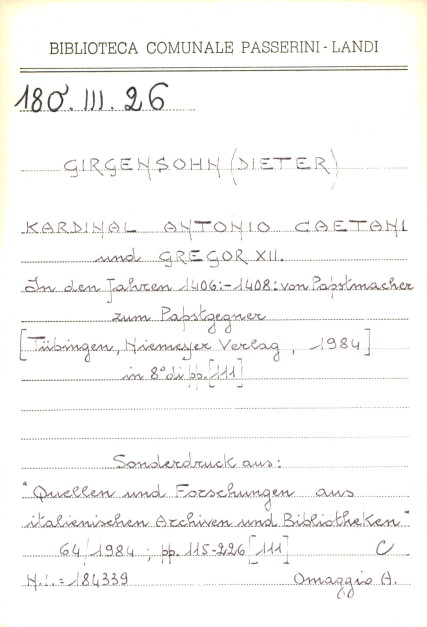 BIBLIOTECA COMUNALE PASSERINI - LANDI
180.III.26
GIRGENSOHN (DIETER)
KARDINAL ANTONIO CAETANI
und GREGOR XII.
In den Jahren 1406:-1408: von Papstmacher
zum Papstgegner
[Tübingen, Niemeyer Verlag, 1984]
in 8° di pp. [111]
Sonderdruck aus:
"Quellen und Forschungen aus
italienischen Archiven und Bibliotheken"
64/1984; pp. 115-226 [111] C
N.I.= 184339 Omaggio A.